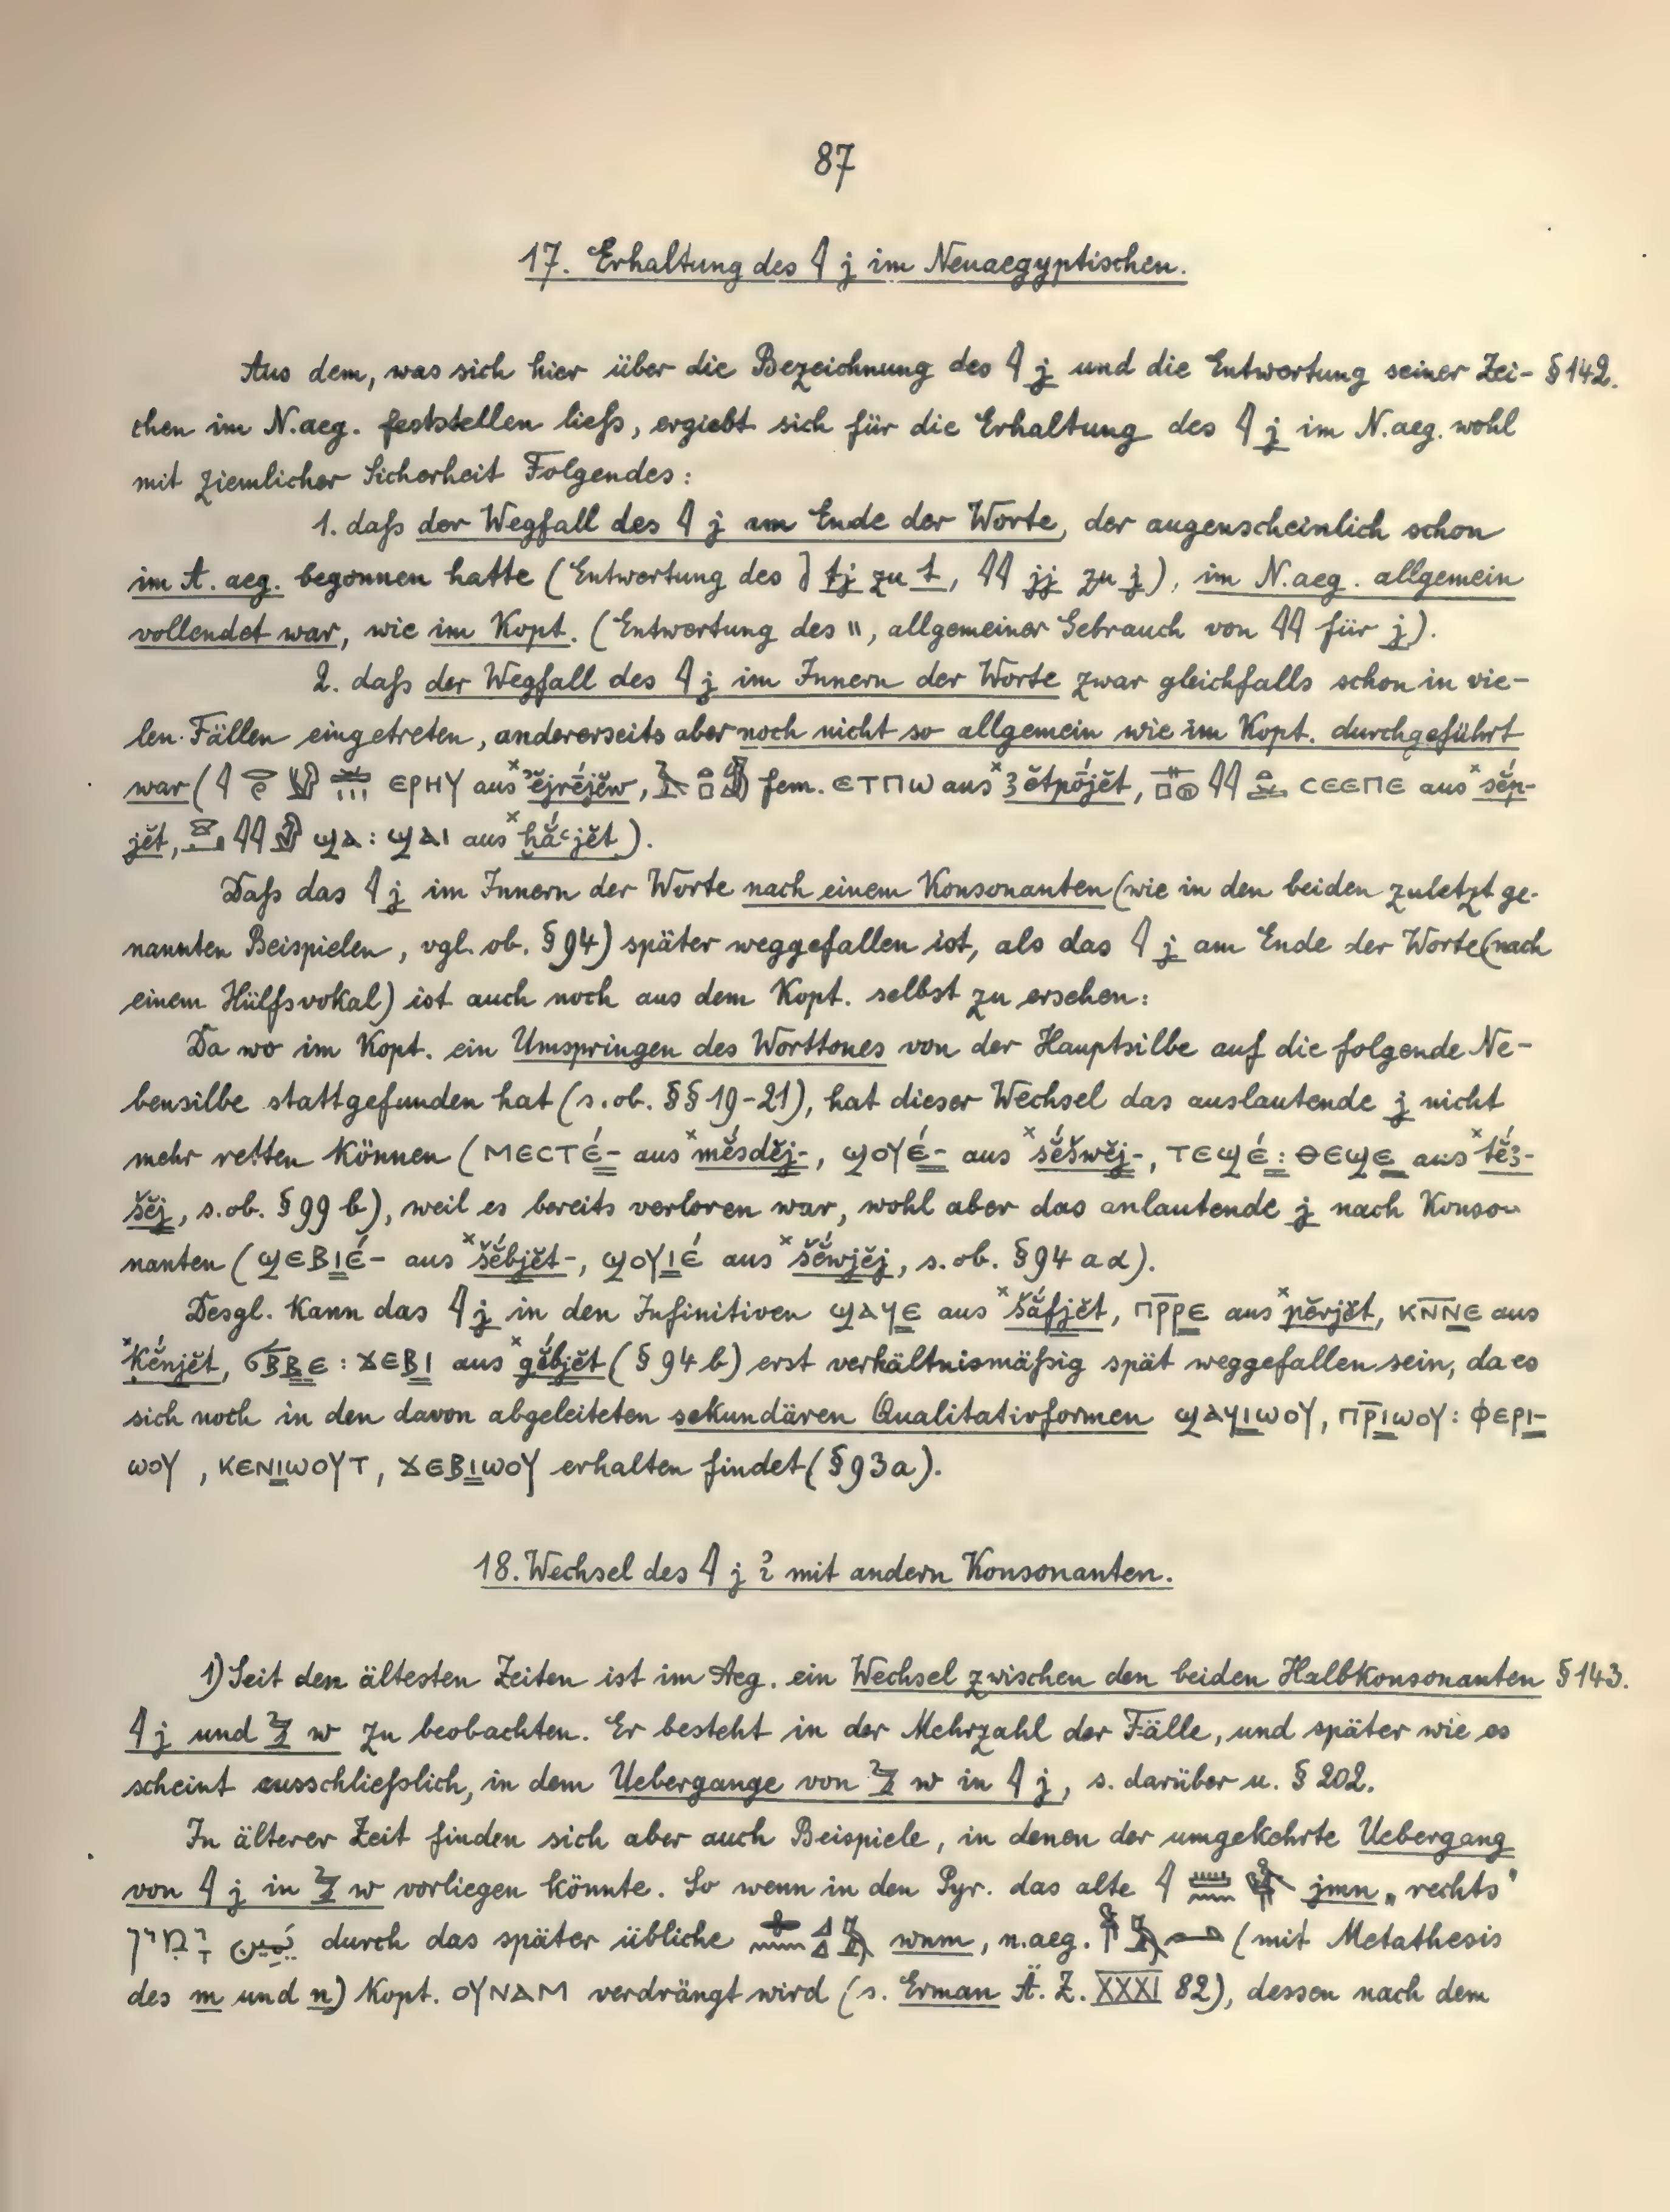 87
17. Erhaltung des 𓇋 j im Neuaegyptischen.
Aus dem, was sich hier über die Bezeichnung des 𓇋 j und die Entwertung seiner Zei- § 142.
chen im N.aeg. feststellen liess, ergiebt sich für die Erhaltung des 𓇋 j im N.aeg. wohl
mit ziemlicher Sicherheit Folgendes:
1. daſs der Wegfall des 𓇋 j am Ende der Worte, der augenscheinlich schon
im A. aeg. begonnen hatte (Entwertung des tj zu t, 𓇋𓇋 jj zu j), im N.aeg. allgemein
vollendet war, wie im Kopt. (Entwertung des \\, allgemeiner Gebrauch von 𓇋𓇋 für j).
2. daſs der Wegfall des 𓇋 j im Innern der Worte zwar gleichfalls schon in vie-
len Fällen eingetreten, andererseits aber noch nicht so allgemein wie im Kopt. durchgeführt
war (𓇋 ⲉⲣⲏⲩ aus ˣʾĕjrḗjĕw, fem. ⲉⲧⲡⲱ aus ˣꜣĕtpṓjĕt, 𓇋𓇋 ⲥⲉⲉⲡⲉ aus ˣsĕ́p-
jĕt, 𓇋𓇋 ϣⲁ : ϣⲁⲓ aus ˣḫắꜥjĕt).
Daſs das 𓇋 j im Innern der Worte nach einem Konsonanten (wie in den beiden zuletzt ge-
nannten Beispielen, vgl. ob. § 94) später weggefallen ist, als das 𓇋 j am Ende der Worte (nach
einem Hülfsvokal) ist auch noch aus dem Kopt. selbst zu ersehen:
Da wo im Kopt. ein Umspringen des Worttones von der Hauptsilbe auf die folgende Ne-
bensilbe stattgefunden hat (s. ob. §§ 19-21), hat dieser Wechsel das auslautende j nicht
mehr retten können (ⲙⲉⲥⲧⲉ́- aus ˣmĕ́sdĕj-, ϣⲟⲩⲉ́- aus ˣšĕ́šwĕj-, ⲧⲉϣⲉ́ : ⲑⲉϣⲉ aus ˣtĕ́ꜣ-
šĕj, s. ob. § 99 b), weil es bereits verloren war, wohl aber das anlautende j nach Konso-
nanten (ϣⲉⲃⲓⲉ́- aus ˣšĕ́bjĕt-, ϣⲟⲩⲓⲉ́ aus ˣšĕ́wjĕj, s. ob. § 94 a α).
Desgl. kann das 𓇋 j in den Infinitiven ϣⲁϥⲉ aus ˣšắfjĕt, ⲡⲣ̅ⲣⲉ aus ˣpĕ́rjĕt, ⲕⲛ̅ⲛⲉ aus
ˣḳĕ́njĕt, ϭⲃ̅ⲃⲉ : ϫⲉⲃⲓ aus ˣgĕ́bjĕt (§ 94 b) erst verhältnismäſsig spät weggefallen sein, da es
sich noch in den davon abgeleiteten sekundären Qualitativformen ϣⲁϥⲓⲱⲟⲩ, ⲡⲣ̅ⲓⲱⲟⲩ : ⲫⲉⲣⲓ-
ⲱⲟⲩ, ⲕⲉⲛⲓⲱⲟⲩⲧ, ϫⲉⲃⲓⲱⲟⲩ erhalten findet (§ 93a).
18. Wechsel des 𓇋 j ? mit andern Konsonanten.
1) Seit den ältesten Zeiten ist im Aeg. ein Wechsel zwischen den beiden Halbkonsonanten § 143.
𓇋 j und 𓅱 w zu beobachten. Er besteht in der Mehrzahl der Fälle, und später wie es
scheint ausschlieſslich, in dem Uebergange von 𓅱 w in 𓇋 j, s. darüber u. § 202.
In älterer Zeit finden sich aber auch Beispiele, in denen der umgekehrte Uebergang
von 𓇋 j in 𓅱 w vorliegen könnte. So wenn in den Pyr. das alte 𓇋𓏠𓈖 jmn „rechts"
יָמִין يَمِين durch das später übliche wnm, n.aeg. (mit Metathesis
des m und n) Kopt. ⲟⲩⲛⲁⲙ verdrängt wird (s. Erman Ä. Z. XXXI 82), dessen nach dem